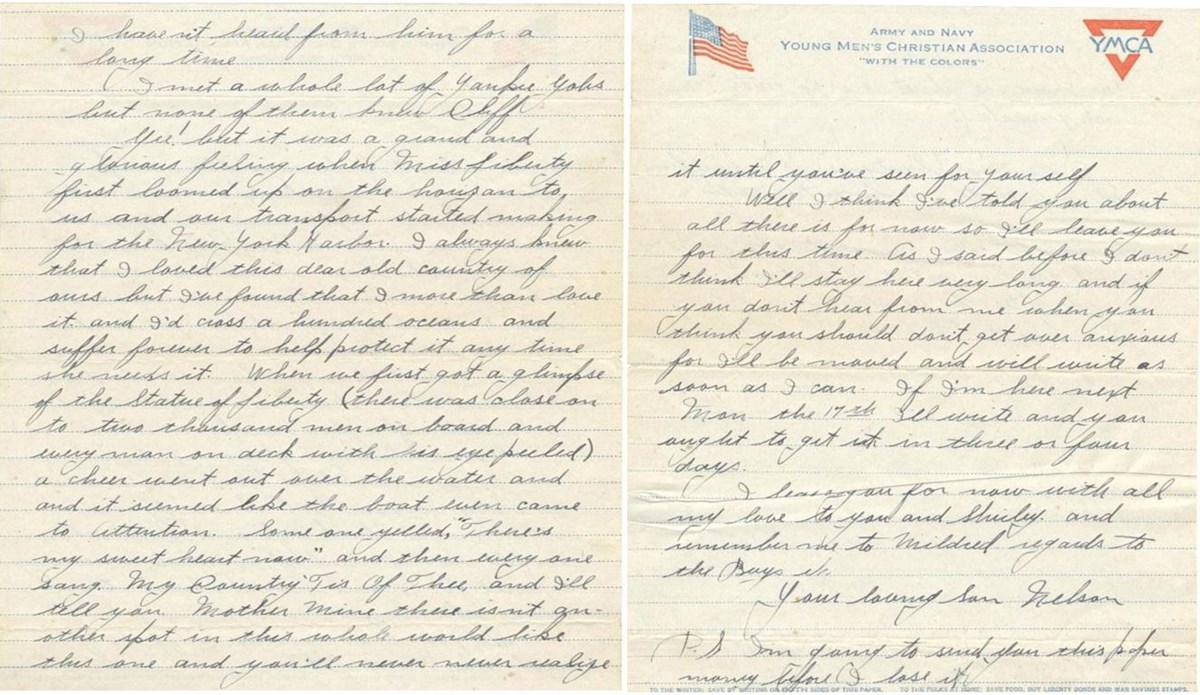 I haven't heard from him for a
long time
( I met a whole lot of Yankee Gobs
but none of them knew Cliff.
Gee! but it was a grand and
glorious feeling when Miss Liberty
first loomed up on the horizan to
us and our transport started making
for the New-York Harbor. I always knew
that I loved this dear old country of
ours but I've found that I more than love
it. and I'd cross a hundred oceans and
suffer forever to help protect it any time
she needs it. When we first got a glimpse
of the Statue of Liberty (there was close on
to two thousand men on board and
every man on deck with his eye peeled)
a cheer went out over the water and
and it seemed like the boat even came
to attention. Some one yelled, "There's
my sweet heart now" and then every one
sang. My Country Tis Of Thee, and I'll
tell you Mother Mine there isn't an-
other spot in this whole world like
this one and you'll never never realize
ARMY AND NAVY
YOUNG MEN'S CHRISTIAN ASSOCIATION
"WITH THE COLORS"
YMCA
it until you've seen for yourself
Well I think I've told you about
all there is for now so I'll leave you
for this time. As I said before I don't
think I'll stay here very long and if
you don't hear from me when you
think you should don't get over anxious
for I'll be moved and will write as
soon as I can. If I'm here next
Mon the 17th I'll write and you
ought to get it in three or four
days.
I leave you for now with all
my love to you and Shirley. and
remember me to Mildred regards to
the Boys
Your loving Son Nelson
P.S I'm going to send you this paper
money before I lose it.
TO THE WRITER: SAVE BY WRITING ON BOTH SIDES OF THIS PAPER. TO THE FOLKS AT HOME: SAVE FOOD, BUY LIBERTY BONDS AND WAR SAVINGS STAMPS